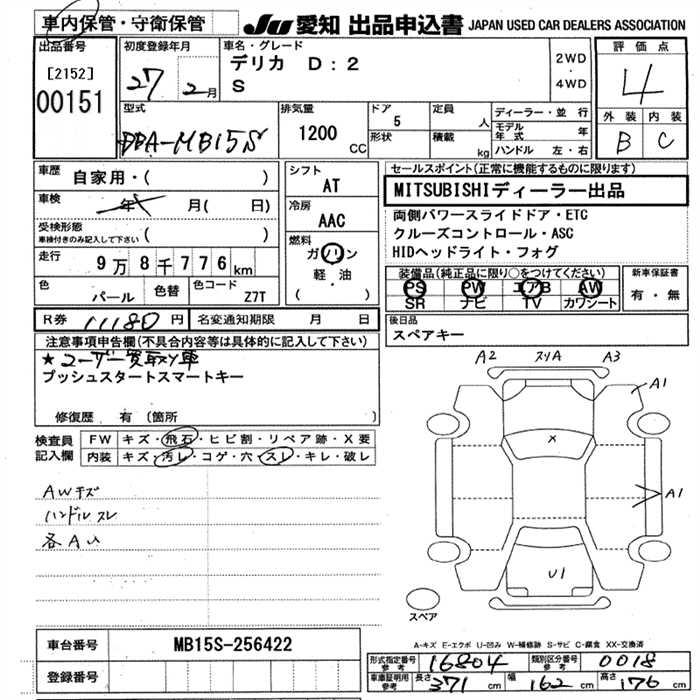 車内保管・守衛保管
JU 愛知 出品申込書 JAPAN USED CAR DEALERS ASSOCIATION
出品番号
[2152]
00151
初度登録年月
27 2月
車名・グレード
デリカ D:2
S
2WD
・
4WD
評価点
4
外装 内装
B C
型式
DBA-MB15S
排気量
1200 CC
ドア 5
形状
定員 人
積載 kg
ディーラー・並行
モデル年式 年
ハンドル 左・右
車歴
自家用・( )
車検
年 月( 日)
受検形態
車検付きのみ記入して下さい ( )
走行
9万8千776km
色
パール
色替
色コード
Z7T
シフト
AT
冷房
AAC
燃料
ガソリン
軽・油
( )
セールスポイント(正常に機能するものに限ります)
MITSUBISHIディーラー出品
両側パワースライドドア・ETC
クルーズコントロール・ASC
HIDヘッドライト・フォグ
装備品(純正品に限り○をつけてください)
PS PW エアB AW
SR ナビ TV カワシート
新車保証書
有・無
R券 11180円
名変通知期限 月 日
後日品
スペアキー
注意事項申告欄(不具合内容等は具体的に記入して下さい)
★ユーザー買取り車
プッシュスタートスマートキー
修復歴 有 (箇所
検査員
記入欄
FW キズ・飛石・ヒビ割・リペア跡・X要
内装 キズ・汚レ・コゲ・穴・スレ・キレ・破レ
AWキズ
ハンドルスレ
各AU
A2 スリA A3
A1
X
A1
U1
スペア
A-キズ E-エクボ U-凹み W-補修跡 S-サビ C-腐食 XX-交換済
車台番号 MB15S-256422
登録番号
形式指定番号 参考 16804
類別区分番号 参考 0018
車庫証明用 参考
長さ 371 cm
幅 162 cm
高さ 176 cm